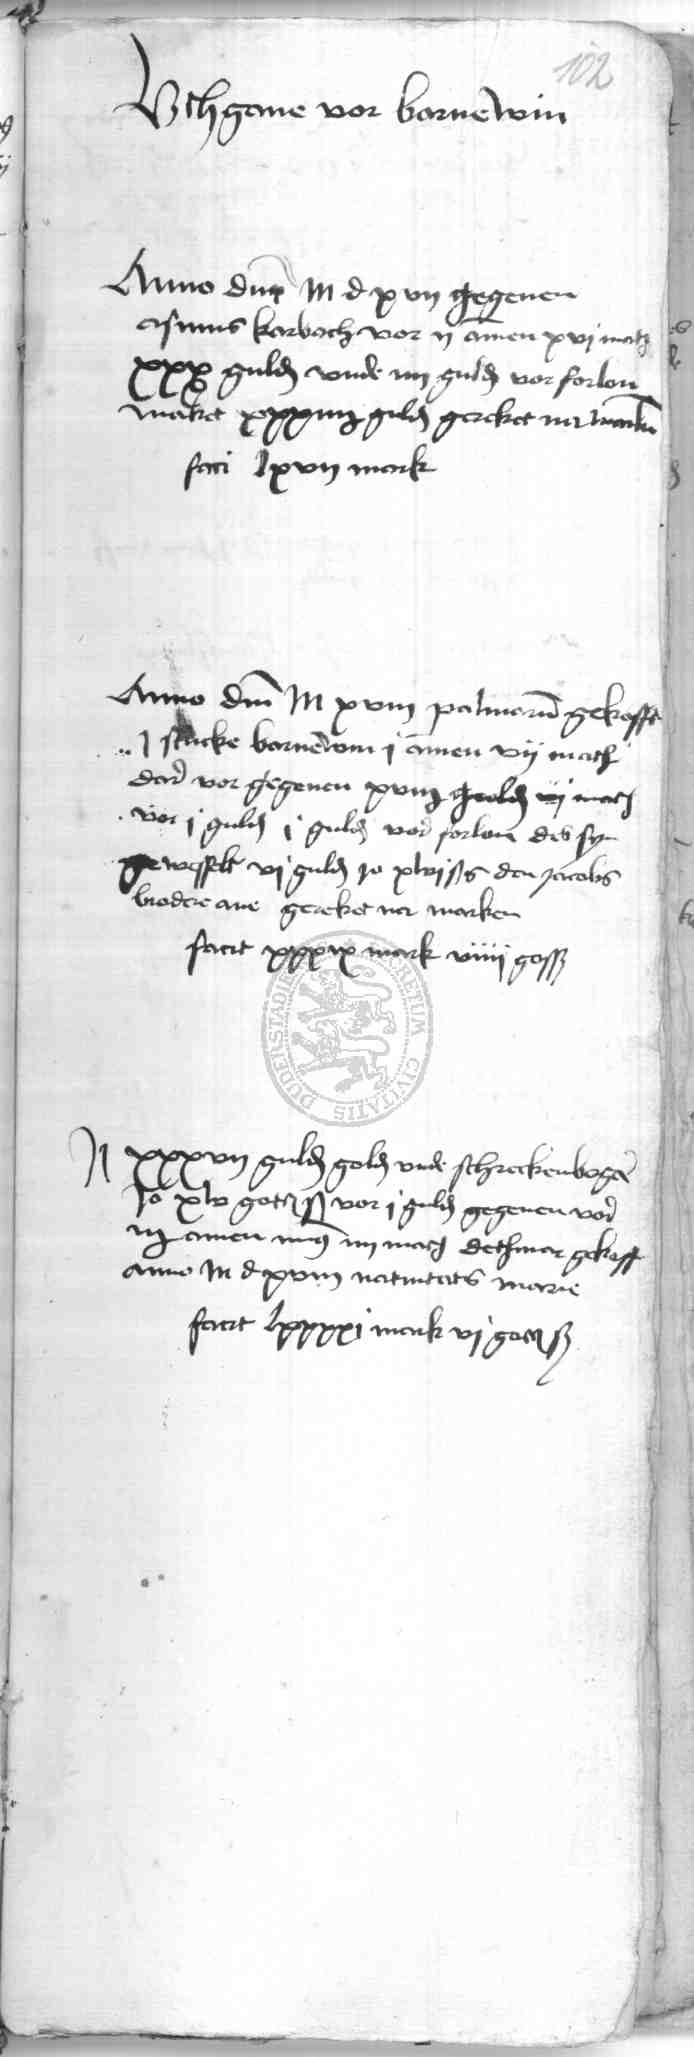 102
Vthgaue vor bornewin
Anno dm M d xvij gegeuen
asmus karboch vor ij amen xvj mats
xxx guld vnde iiij guld vor forlon
maket xxxiiij guld gereket na marken
faci lxvij mark
Anno dm M xviij palmarum gekofft
j stucke bornewin j amen vij mats
dar vor gegeuen xviij guld mats
vor j guld j guld vor forlon des sy
gewesselt vj guld jo den jacobs
brodere ane gereket na marken
facit xxxix mark gosß
N xxxvij guld gold vnde schreckenberger
jo xlv gotß vor j guld gegeuen vor
iij amen iiij mats dethmar gekofft
anno M d xviij natiuitatis marie
facit lxxxxj mark vj gotß
DUDERSTADIE
SECRETUM CIVITATIS